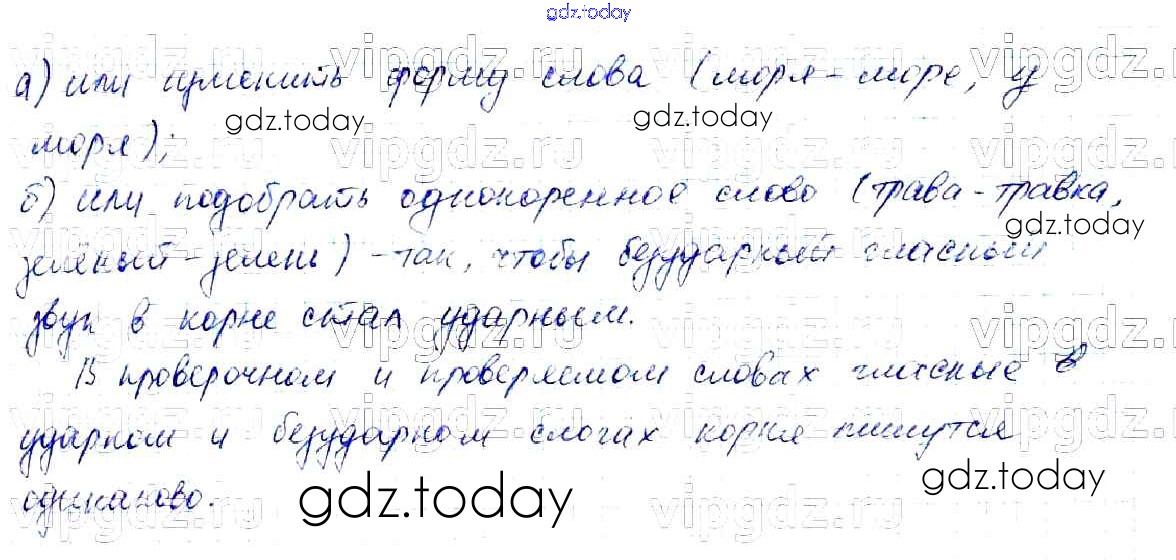 gdz.today
а) или изменить форму слова (моря - море, у
gdz.today
gdz.today
моря);
б) или подобрать однокоренное слово (трава - травка,
gdz.today
зелёный - зелень) - так, чтобы безударный гласный
звук в корне стал ударным.
В проверочном и проверяемом словах гласные в
ударном и безударном слогах корня пишутся
gdz.today
одинаково.
gdz.today
vipgdz.ru
vipgdz.ru
vipgdz.ru
vipgdz.ru
vipgdz.ru
vipgdz.ru
vipgdz.ru
vipgdz.ru
vipgdz.ru